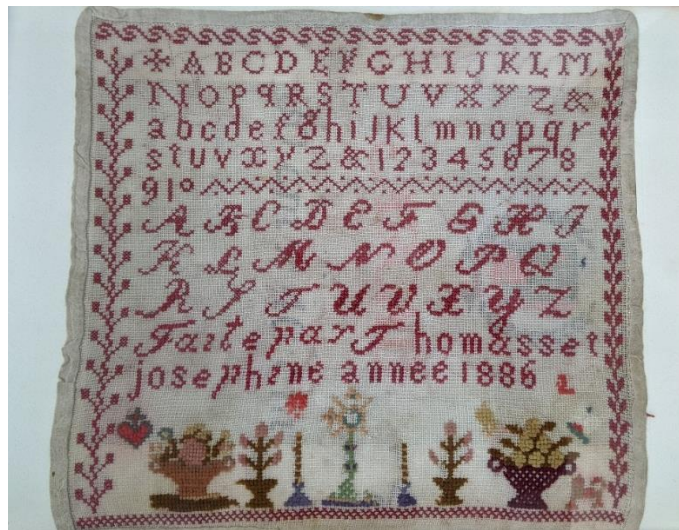 * A B C D E F G H I J K L M
N O P Q R S T U V X Y Z &
a b c d e f g h i J K l m n o p q r
s t u v x y Z & 1 2 3 4 5 6 7 8
9 10
A B C D E F G H I
K L M N O P Q
R S T U V X Y Z
Faite par Thomasset
josephine année 1886